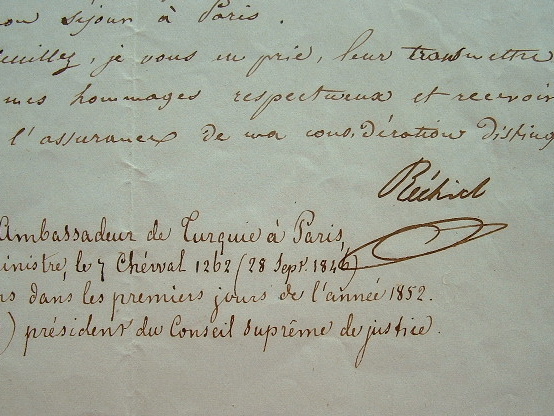 mon séjour à Paris.
Veuillez, je vous en prie, leur transmettre
mes hommages respectueux et recevoir
l'assurance de ma considération disting
Réchid
Ambassadeur de Turquie à Paris,
ministre, le 7 Chévval 1262 (28 Sept. 1846)
ns dans les premiers jours de l'année 1852.
) président du Conseil suprême de justice.